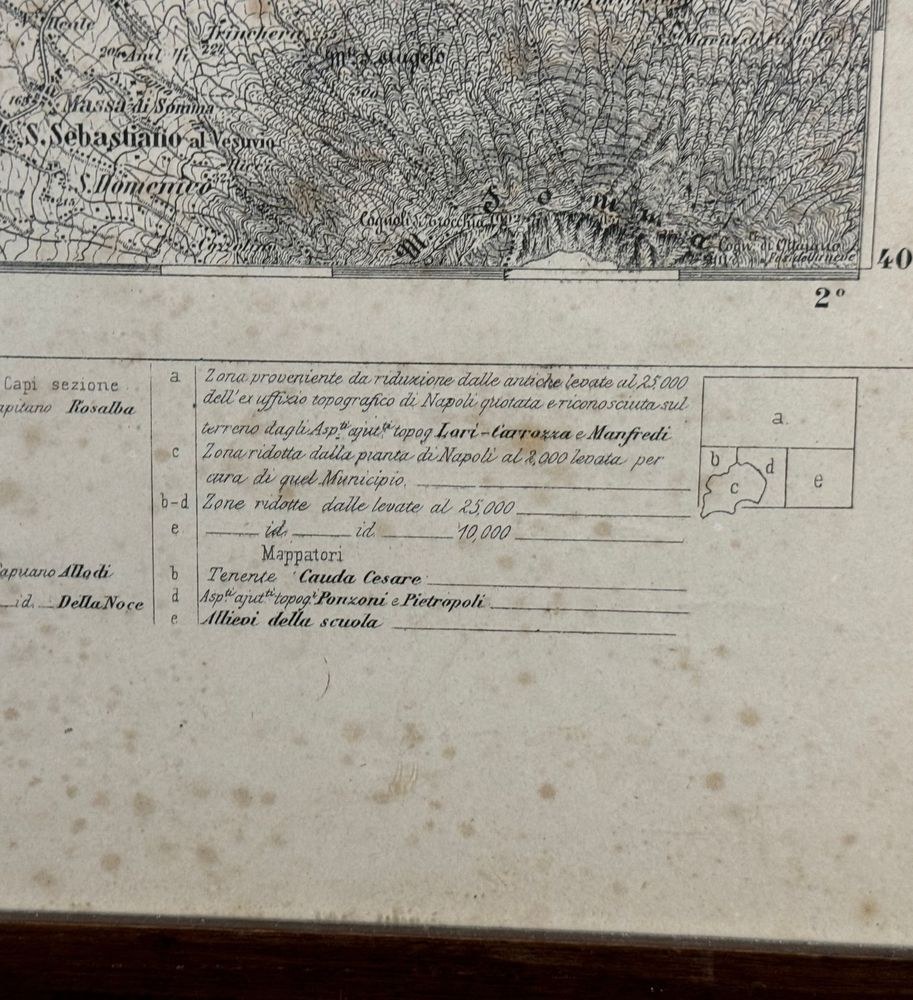 Trinchera
222
Mte S. Angelo
500
Massa di Somma
S. Sebastiano al Vesuvio
S. Domenico
M. Somma
Cogn. di Ottajano
40
2°
Capi sezione
apitano Rosalba
a Zona proveniente da riduzione dalle antiche levate al 25,000
dell'ex uffizio topografico di Napoli quotata e riconosciuta sul
terreno dagli Aspti ajutti topogi Lari-Carrozza e Manfredi
c Zona ridotta dalla pianta di Napoli al 2,000 levata per
cura di quel Municipio.
b-d Zone ridotte dalle levate al 25,000
e id. id. 10,000
Mappatori
apitano Allodi
b Tenente Cauda Cesare
id. Della Noce
d Aspti ajutti topogi Ponzoni e Pietropoli
e Allievi della scuola
a.
b
d
c
e